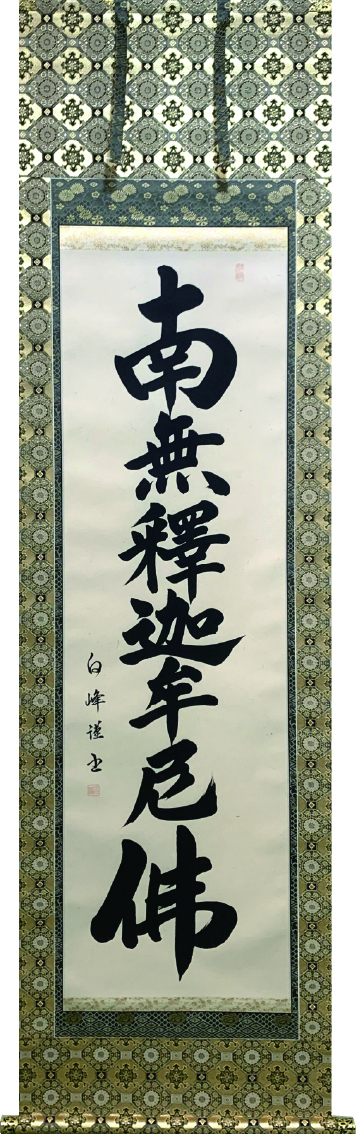 南無釋迦牟尼佛
白峰謹書